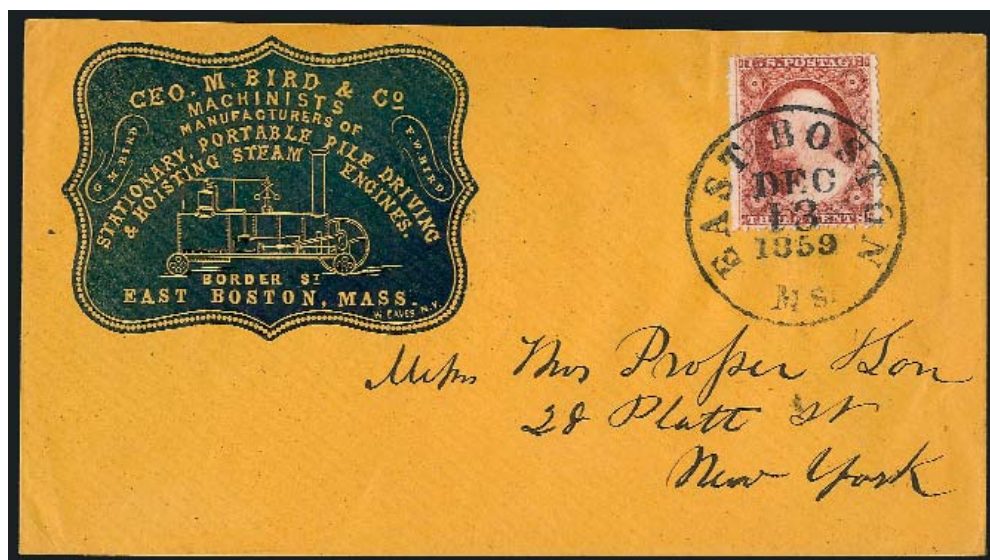 GEO. M. BIRD & Cº
MACHINISTS
MANUFACTURERS OF
STATIONARY, PORTABLE PILE DRIVING
& HOISTING STEAM ENGINES.
G. M. BIRD
F. W. BIRD
BORDER ST
EAST BOSTON, MASS.
W. EAVES N.Y.
U.S. POSTAGE
THREE CENTS
EAST BOSTON
DEC
13
1859
MS
Messrs Thos Prosser & Son
28 Platt St
New York